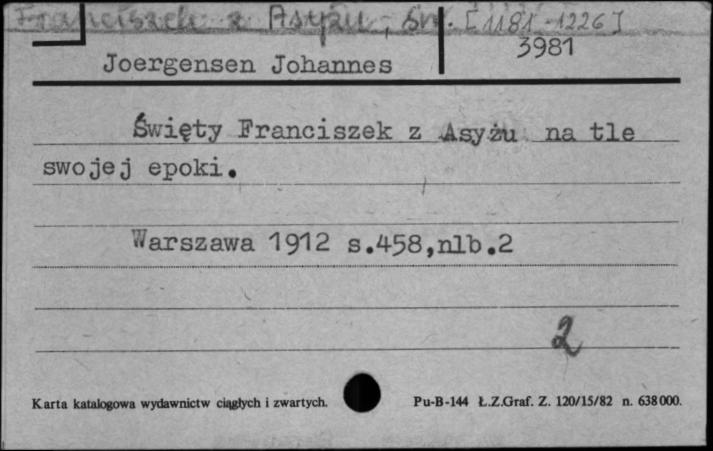 Franciszek z Asyżu, św. [1181-1226]
3981
Joergensen Johannes
Święty Franciszek z Asyżu na tle
swojej epoki.
Warszawa 1912 s.458,nlb.2
2
Karta katalogowa wydawnictw ciągłych i zwartych.
Pu-B-144 Ł.Z.Graf. Z. 120/15/82 n. 638000.